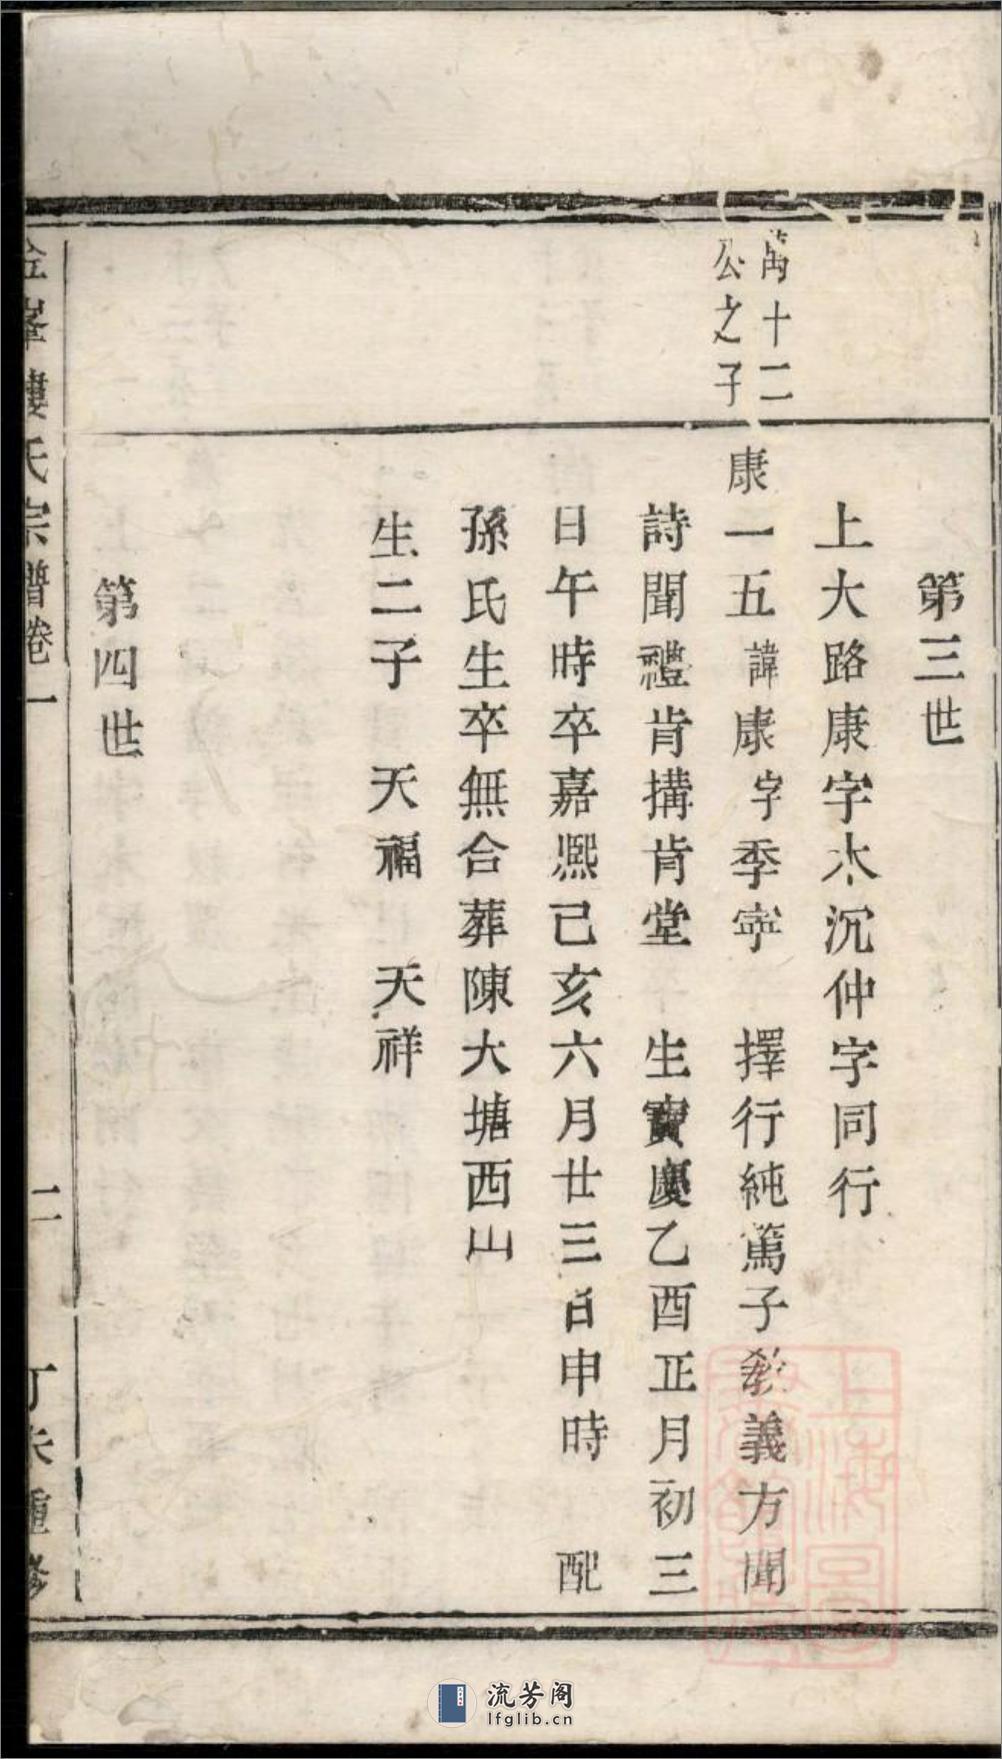 第三世
上大路康字水沉仲字同行
萬十二
公之子
康一五諱康字季寧 擇行純篤子教義方聞
詩聞禮肯搆肯堂 生寶慶乙酉正月初三
日午時卒嘉熙己亥六月廿三日申時 配
孫氏生卒無合葬陳大塘西山
生二子 天福 天祥
第四世
金峯樓氏宗譜卷一 二 丁未重修
上海圖書
流芳阁
lfglib.cn